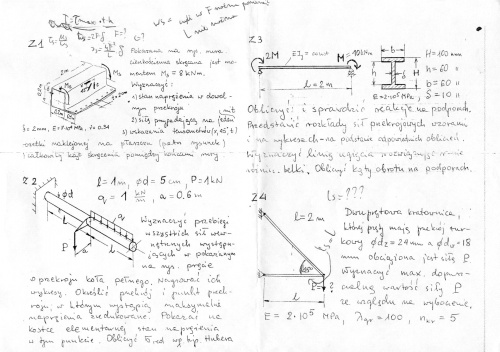 Z1
Pokazana na rys. rura
cienkościenna skręcana jest mo-
mentem M₀ = 8 kNm.
Wyznaczyć:
1) stan naprężenia w dowol-
nym przekroju
2) siłę przypadającą na
3) wskazania tensometrów
δ = 2mm, ν = 0.34
rozetki naklejonej na płaszczu (patrz rysunek)
całkowity kąt skręcenia pomiędzy końcami rury
Z2
l = 1m, ød = 5 cm, P = 1kN
q = 1 kN/m, a = 0,6 m
Wyznaczyć przebiegi
wszystkich sił wew-
nętrznych występu-
jących w pokazanym
na rys. pręcie
o przekroju koła pełnego. Narysować ich
wykresy. Określić przekrój i punkt przek-
roju, w którym wystąpią maksymalne
naprężenia zredukowane. Pokazać na
kostce elementarnej stan naprężenia
w tym punkcie. Obliczyć σred wg hip. Hubera
Z3
2M EJz = const M = 10 kNm
l = 2m
H = 160 mm
h = 60 "
b = 60 "
δ = 10 "
E = 2·10⁵ MPa
Obliczyć i sprawdzić reakcje na podporach.
Przedstawić rozkłady sił przekrojowych wzorami
i na wykresach - na podstawie odpowiednich obliczeń.
Wyznaczyć linię ugięcia rozwiązując równanie
różnic. belki. Obliczyć kąty obrotu na podporach.
Z4
ls = ???
l = 2m
Dwuprętowa kratownica,
której pręty mają przekrój rur-
kowy ødz = 24mm a ødw = 18
mm obciążona jest siłą P
Wyznaczyć max. dopusz-
czalną wartość siły P
ze względu na wyboczenie.
E = 2·10⁵ MPa, λgr = 100, nw = 5